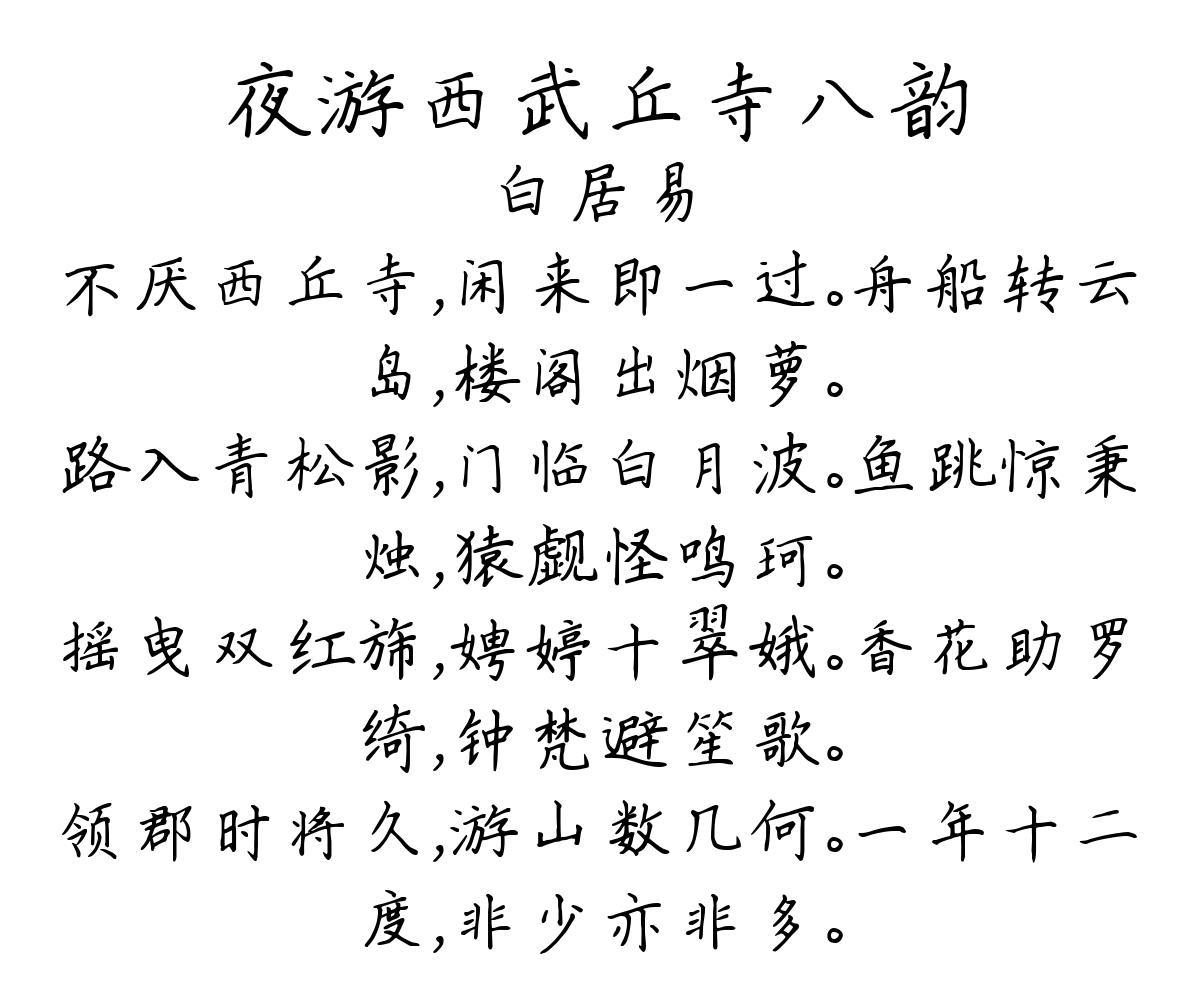 夜游西武丘寺八韵
白居易
不厌西丘寺,闲来即一过。舟船转云
岛,楼阁出烟萝。
路入青松影,门临白月波。鱼跳惊秉
烛,猿觑怪鸣珂。
摇曳双红旆,娉婷十翠娥。香花助罗
绮,钟梵避笙歌。
领郡时将久,游山数几何。一年十二
度,非少亦非多。